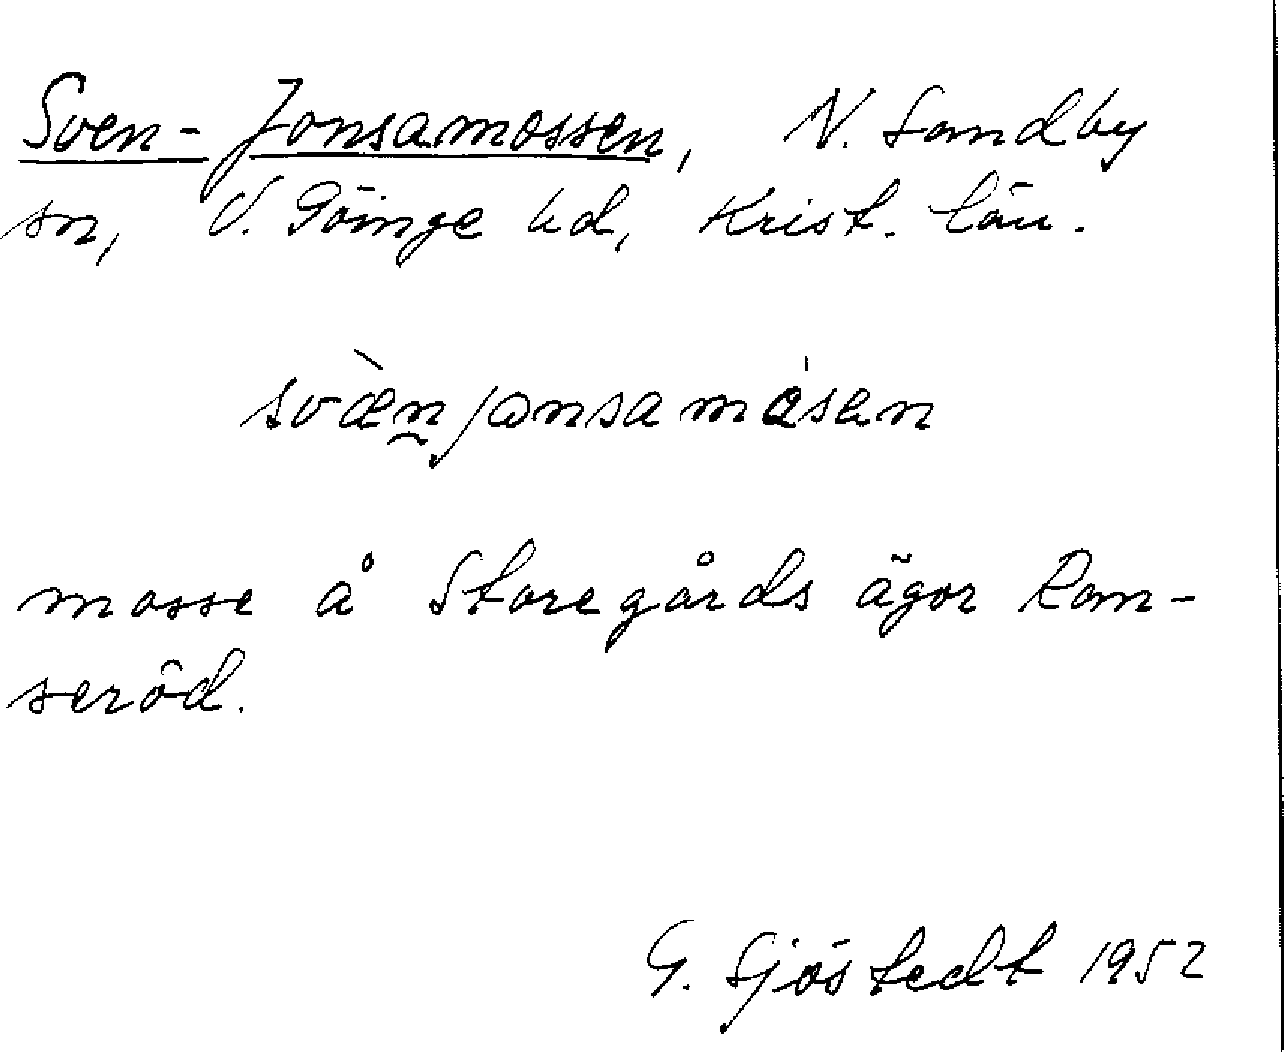 Sven-Jonsamossen, N. Sandby
sn, V. Göinge hd, Krist. län.
svæ̀n̰jonsamåsen
mosse å Storegårds ägor Ram-
seröd.
G. Sjöstedt 1952